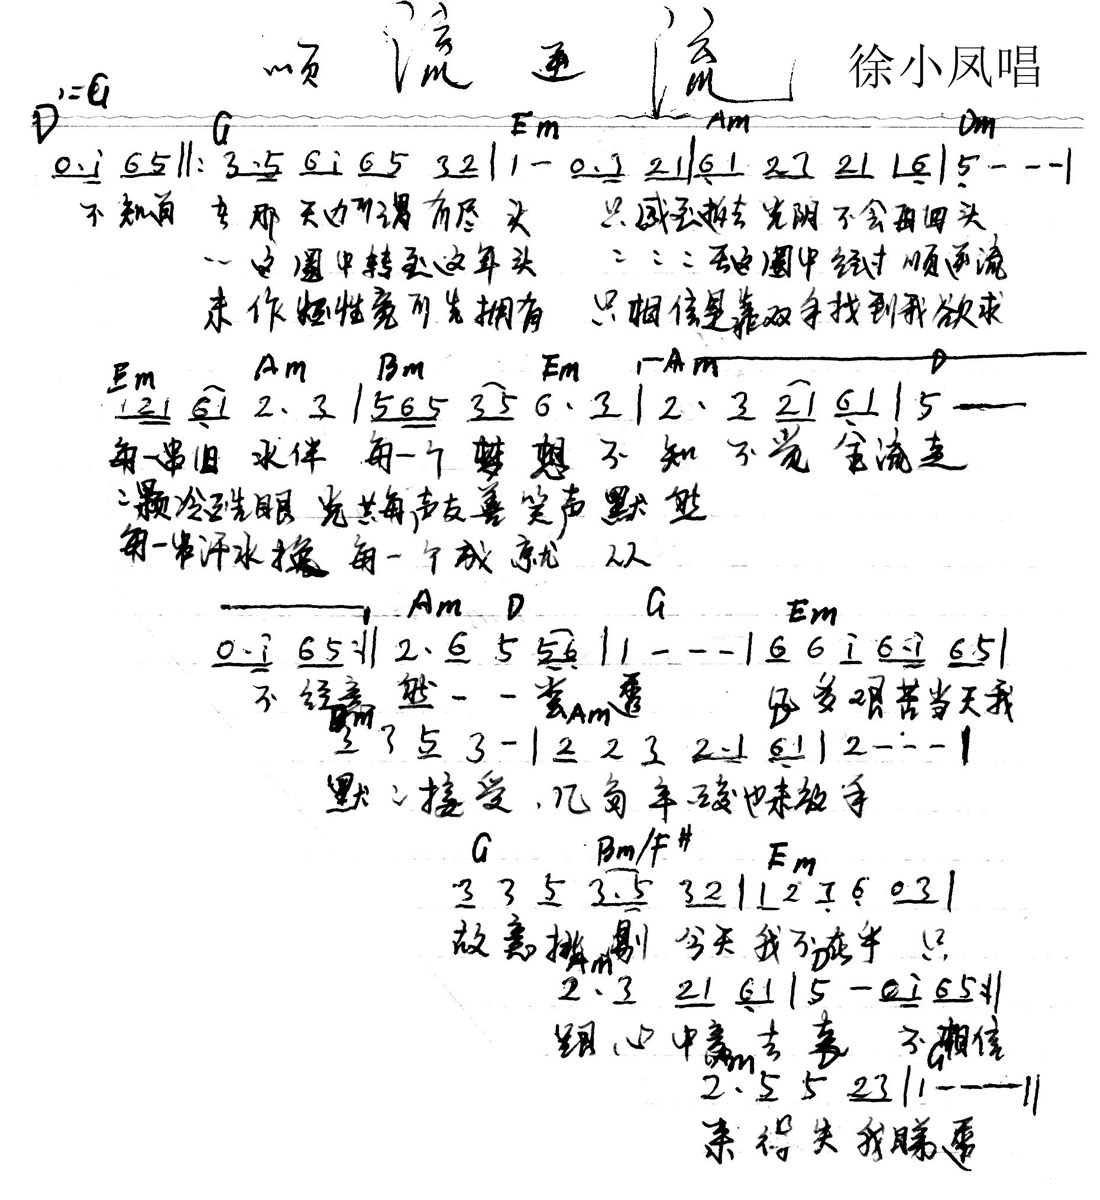 顺 流 逆 流 徐小凤唱
1=G
D G Em Am Dm
0.i 65||: 3.5 6i 65 32|1- 0.3 21|61 23 21 16|5---|
不知 那 天边所谓有尽头 只感到 光阴不会再回头
一这圈中转到这年头 ニニニ 在这圈中经过顺逆流
未作牺牲竟可先拥有 只相信是靠双手找到我欲求
Em Am Bm Em Am D
121 61 2. 3|565 35 6. 3|2. 3 21 61|5—
每一串泪水伴每一个梦想 不知不觉全流走
ニ颗冷
眼光共每声友善笑声默然
每一串汗水换每一个成就 从
Am D G Em
0.i 65:|| 2.6 5 56|1---|6 6 i 6.i 65|
不经意 然一一去 几多艰苦当天我
Am
3 3 5 3-|2 2 3 2.1 61|2---|
默ニ接受 几多辛酸也未放手
G Bm/F# Em
3 3 5 3.5 32|1 2 1 6 03|
故意 今天我不在乎 只
Am D
2.3 21 61|5 -0i 65:||
心中 去 不相信
G
2.5 5 23|1----||
未得失我睇透